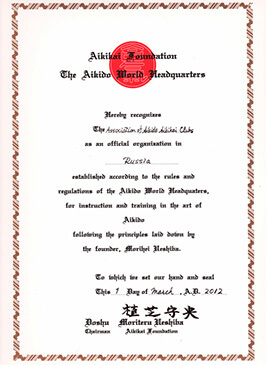 Aikikai Foundation
The Aikido World Headquarters
Hereby recognizes
The Association of Aikido Aikikai Clubs
as an official organization in
Russia
established according to the rules and
regulations of the Aikido World Headquaters,
for instruction and training in the art of
Aikido
following the principles laid down by
the founder, Morihei Ueshiba.
To which we set our hand and seal
This 1 Day of March , A.D. 2012
植芝守央
Doshu Moriteru Ueshiba
Chairman Aikikai Foundation